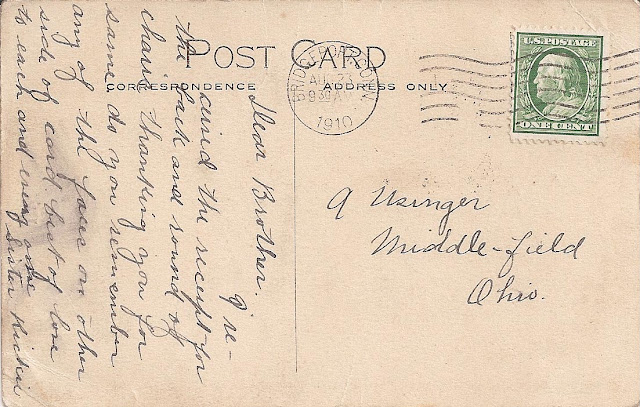 POST CARD
CORRESPONDENCE
ADDRESS ONLY
BRIDGEPORT, CONN
AUG 23
930 A
1910
U.S. POSTAGE
ONE CENT
Dear Brother.
I re-
ceived the receipt for
the jack and round of
chairs thanking you for
same do you remember
any of the faces on other
side of card best of love
to each and every one
Sister
A Usinger
Middle-field
Ohio.